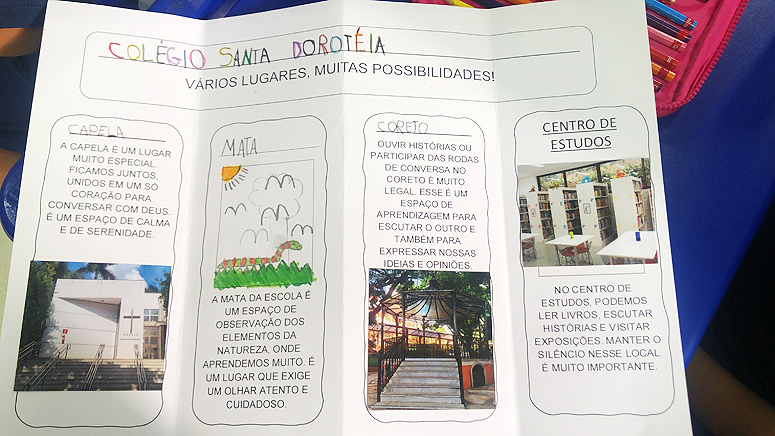 COLÉGIO SANTA DOROTÉIA
VÁRIOS LUGARES, MUITAS POSSIBILIDADES!
CAPELA
A CAPELA É UM LUGAR
MUITO ESPECIAL.
FICAMOS JUNTOS,
UNIDOS EM UM SÓ
CORAÇÃO PARA
CONVERSAR COM DEUS.
É UM ESPAÇO DE CALMA
E DE SERENIDADE.
MATA
A MATA DA ESCOLA É
UM ESPAÇO DE
OBSERVAÇÃO DOS
ELEMENTOS DA
NATUREZA, ONDE
APRENDEMOS MUITO. É
UM LUGAR QUE EXIGE
UM OLHAR ATENTO E
CUIDADOSO.
CORETO
OUVIR HISTÓRIAS OU
PARTICIPAR DAS RODAS
DE CONVERSA NO
CORETO É MUITO
LEGAL. ESSE É UM
ESPAÇO DE
APRENDIZAGEM PARA
ESCUTAR O OUTRO E
TAMBÉM PARA
EXPRESSAR NOSSAS
IDEIAS E OPINIÕES.
CENTRO DE
ESTUDOS
NO CENTRO DE
ESTUDOS, PODEMOS
LER LIVROS, ESCUTAR
HISTÓRIAS E VISITAR
EXPOSIÇÕES. MANTER O
SILÊNCIO NESSE LOCAL
É MUITO IMPORTANTE.